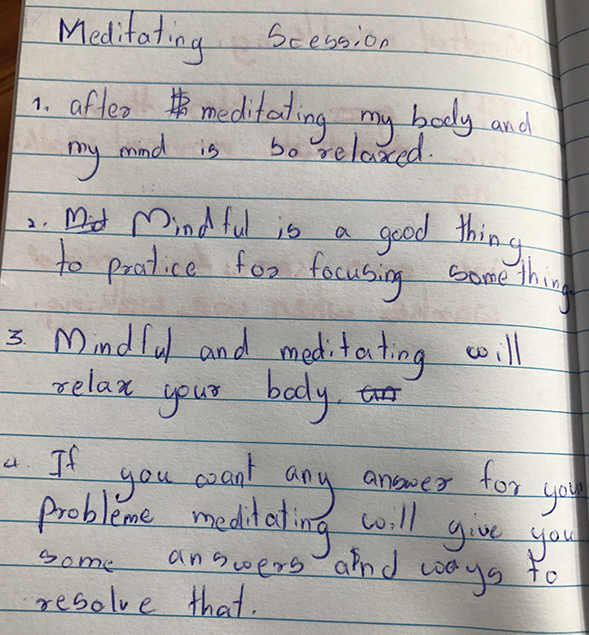 Meditating Scession
1. after meditating my body and
my mind is so relaxed.
2. Mindful is a good thing
to pratice for focusing something.
3. Mindful and meditating will
relax your body.
4. If you want any answer for your
probleme meditating will give you
some answers and ways to
resolve that.